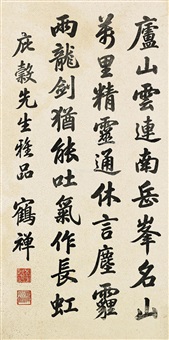 廬山雲連南岳峯名山
萬里精靈通休言塵霾
兩龍劍猶能吐氣作長虹
庇榖先生雅品 鶴禅